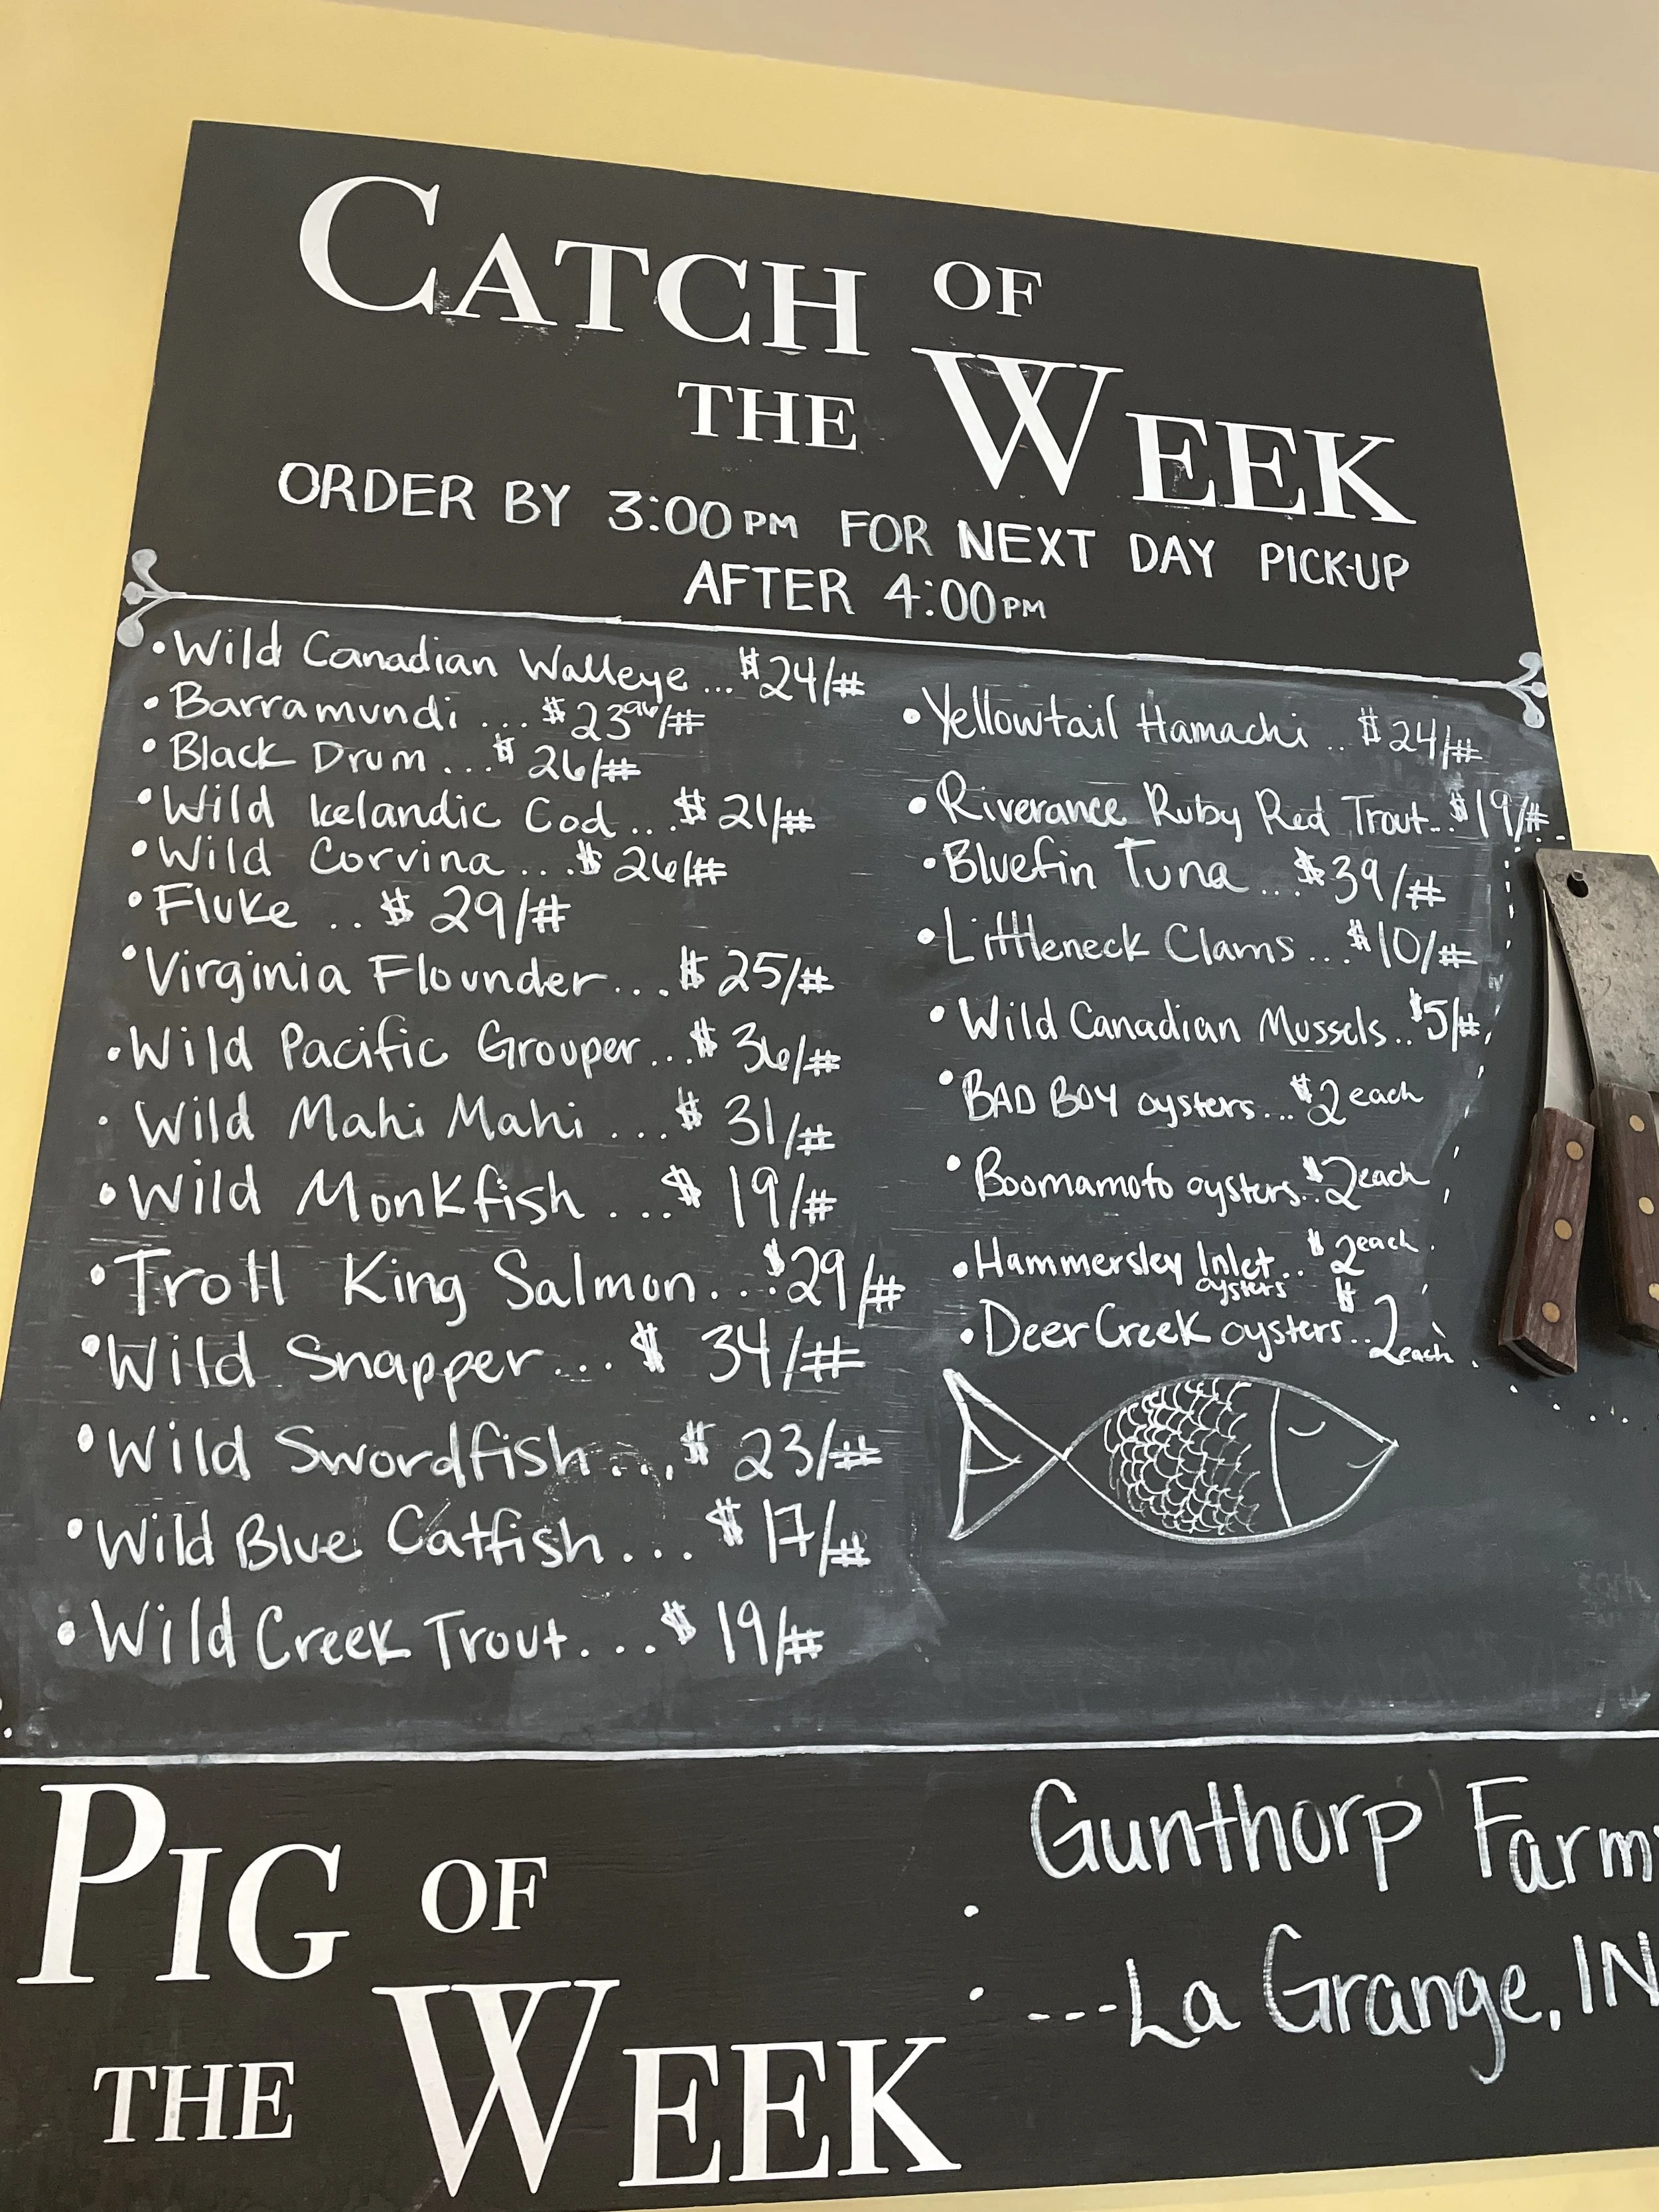 CATCH OF
THE WEEK
ORDER BY 3:00PM FOR NEXT DAY PICK-UP
AFTER 4:00PM
• Wild Canadian Walleye ... $24/#
• Barramundi ... $23/#
• Black Drum ... $26/#
• Wild Icelandic Cod ... $21/#
• Wild Corvina ... $26/#
• Fluke .. $29/#
• Virginia Flounder ... $25/#
• Wild Pacific Grouper ... $36/#
• Wild Mahi Mahi ... $31/#
• Wild Monkfish ... $19/#
• Troll King Salmon ... $29/#
• Wild Snapper ... $34/#
• Wild Swordfish ... $23/#
• Wild Blue Catfish ... $17/#
• Wild Creek Trout .... $19/#
• Yellowtail Hamachi .. $24/#
• Riverance Ruby Red Trout .. $19/#
• Bluefin Tuna ... $39/#
• Littleneck Clams ... $10/#
• Wild Canadian Mussels .. $5/#
• BAD BOY oysters ... $2 each
• Boomamoto oysters .. $2 each
• Hammersley Inlet .. $2 each
oysters
• Deer Creek oysters .. $2 each
PIG OF
THE WEEK
Gunthorp Farm
---La Grange, IN